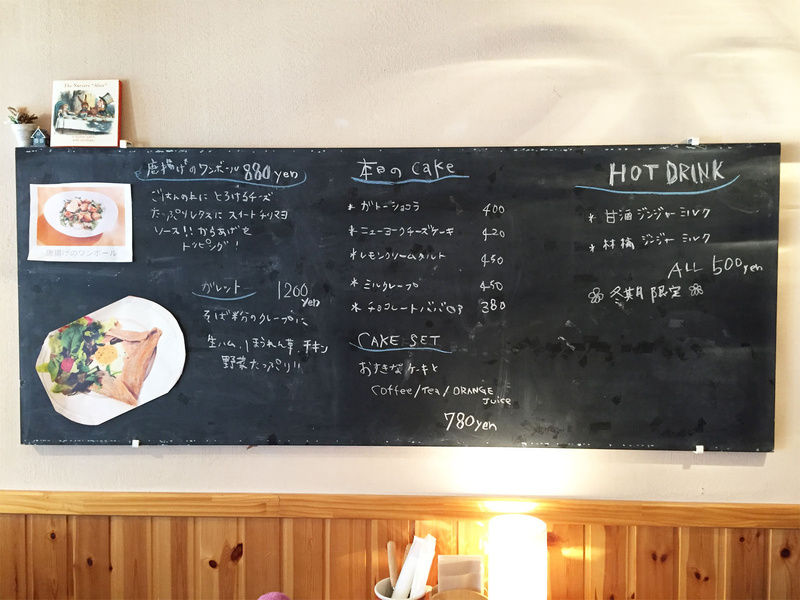 The Nursery "Alice"
唐揚げのワンボール 880yen
ごはんの上に とろけるチーズ
たっぷりレタスに スイートチリマヨ
ソース!! からあげを
トッピング!
唐揚げのワンボール
ガレット 1200
yen
そば粉のクレープに
生ハム、ほうれん草、チキン
野菜たっぷり!!
本日の cake
* ガトーショコラ 400
* ニューヨークチーズケーキ 420
* レモンクリームタルト 450
* ミルクレープ 450
* チョコレートババロア 380
CAKE SET
お好きなケーキと
Coffee/Tea/ORANGE
Juice
780yen
HOT DRINK
* 甘酒 ジンジャー ミルク
* 林檎 ジンジャー ミルク
ALL 500yen
冬期限定